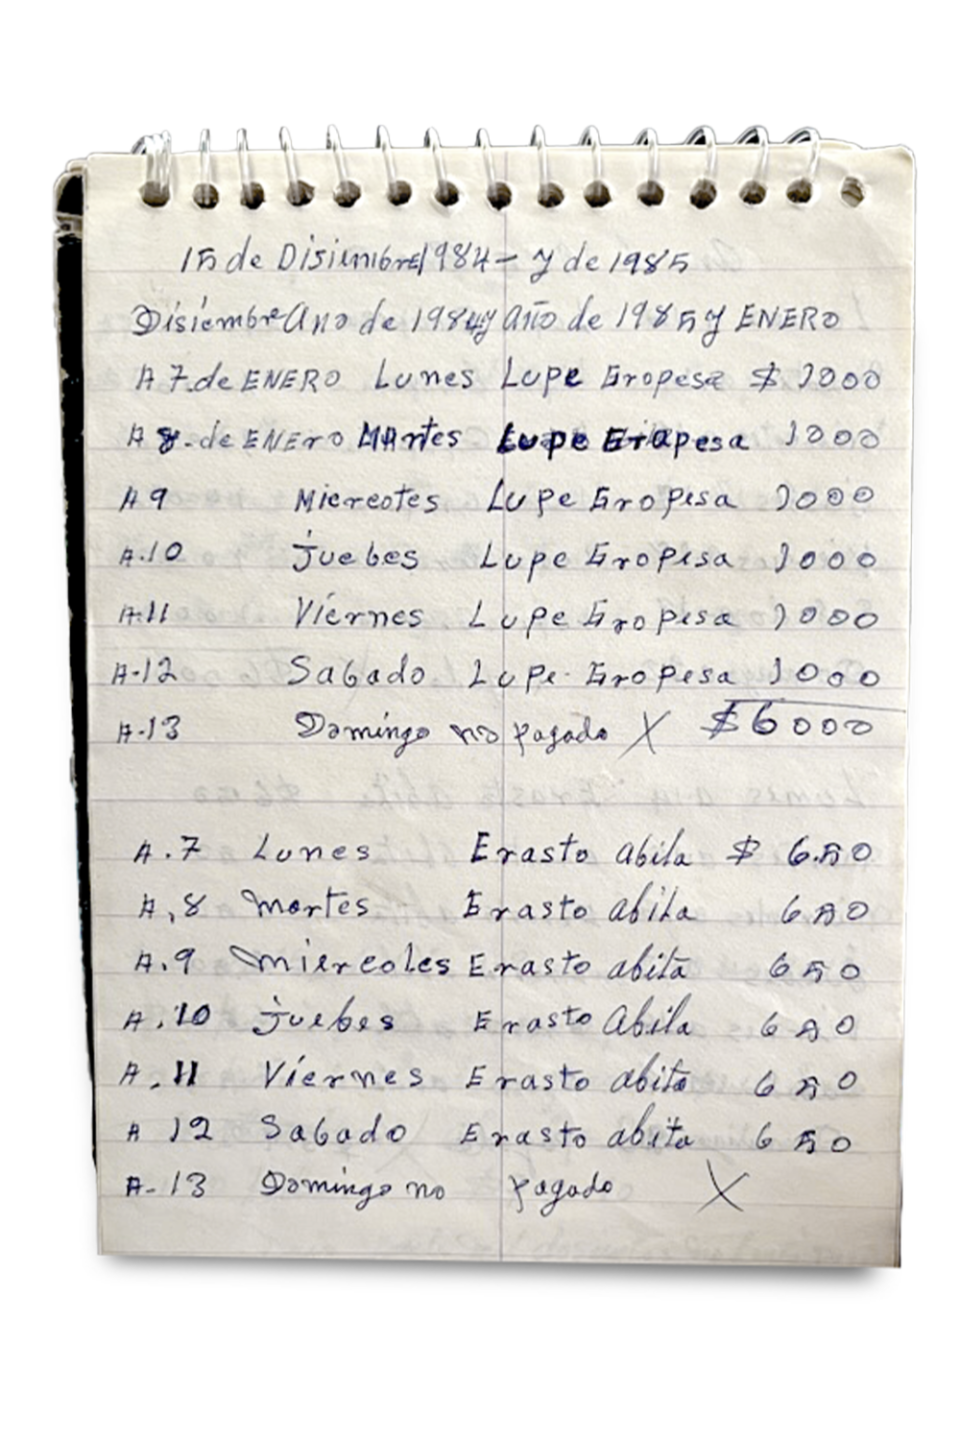 15 de Disiembre 1984 - y de 1985
Disiembre Ano de 1984 y año de 1985 y ENERO
A 7. de ENERO Lunes Lupe Eropesa $ 1000
A 8. de ENEro MArtes Lupe Erapesa 1000
A 9 Miercotes Lupe Eropesa 1000
A.10 juebes Lupe Eropesa 1000
A.11 Viernes Lupe Eropesa 1000
A-12 Sabado Lupe Eropesa 1000
A-13 Domingo no pagado X $6000
A.7 Lunes Erasto abila $ 6.50
A.8 martes Erasto abila 650
A.9 miercoles Erasto abila 650
A.10 juebes Erasto abila 650
A.11 Viernes Erasto abila 650
A 12 Sabado Erasto abila 650
A-13 Domingo no pagado X